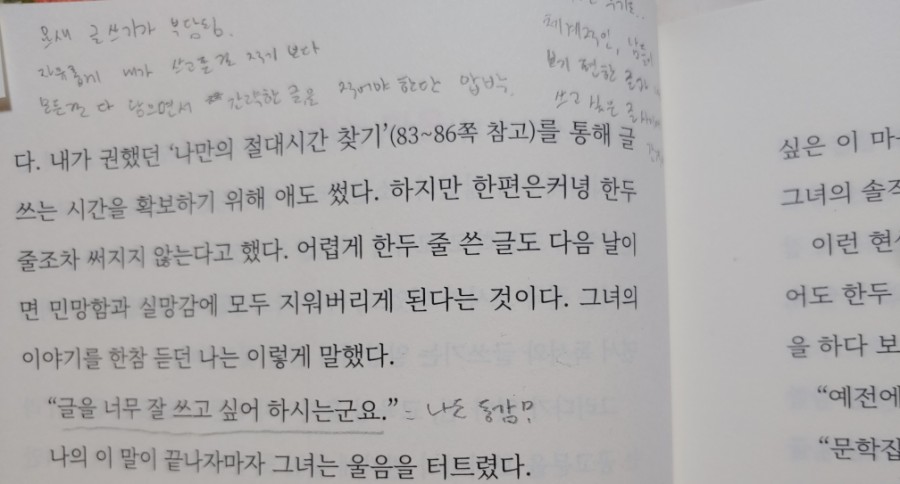 요새 글쓰기가 부담됨.
자유롭게 내가 쓰고플걸 적기 보다
모든걸 다 담으면서 간략한 글을 적어야 한단 압박.
체계적인, 남들이
보기 편한 글과
쓰고 싶은 글
다. 내가 권했던 ‘나만의 절대시간 찾기’(83~86쪽 참고)를 통해 글
쓰는 시간을 확보하기 위해 애도 썼다. 하지만 한편은커녕 한두
줄조차 써지지 않는다고 했다. 어렵게 한두 줄 쓴 글도 다음 날이
면 민망함과 실망감에 모두 지워버리게 된다는 것이다. 그녀의
이야기를 한참 듣던 나는 이렇게 말했다.
“글을 너무 잘 쓰고 싶어 하시는군요.” 나도 동감?
나의 이 말이 끝나자마자 그녀는 울음을 터트렸다.
싶은 이 마
그녀의 솔
이런 현
어도 한두
을 하다 보
“예전에
“문학집